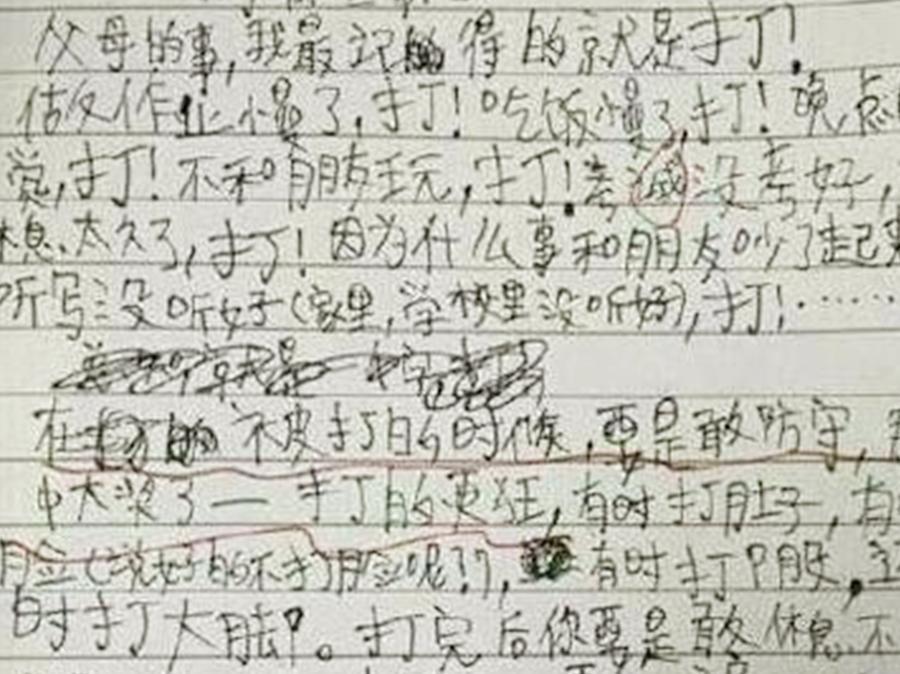 父母的事,我最记得的就是打!
做作业慢了,打!吃饭慢了,打!晚点
觉,打!不和朋友玩,打!考试没考好,
休息太久了,打!因为什么事和朋友吵了起来
听写没听好(家里,学校里没听好),打!……
在被打的时候,要是敢防守,
中大奖了——打的更狂,有时打肚子,有
脸(说好的不打脸呢?!),有时打屁股,还
时打大腿。打完后你要是敢休息不